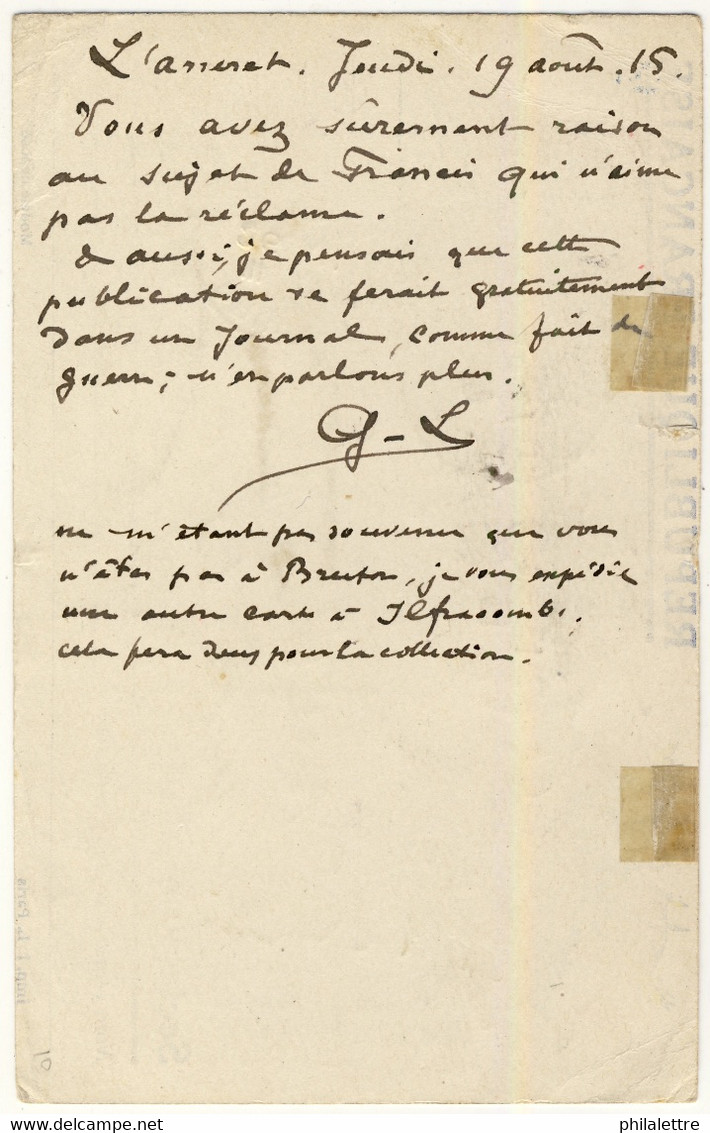 L'asseret. Jeudi. 19 août. 15.
Vous avez sûrement raison
au sujet de Francis qui n'aime
pas la réclame.
& aussi, je pensais que cette
publication se ferait gratuitement
dans un Journal, comme fait de
guerre; n'en parlons plus.
G-L
ne m'étant pas souvenu que vous
n'êtes pas à Bruton, je vous expédie
une autre carte à Ilfracombe.
cela fera deux pour la collection.
REPUBLIQUE FRANÇAISE
Paris
10
delcampe.net
philalettre